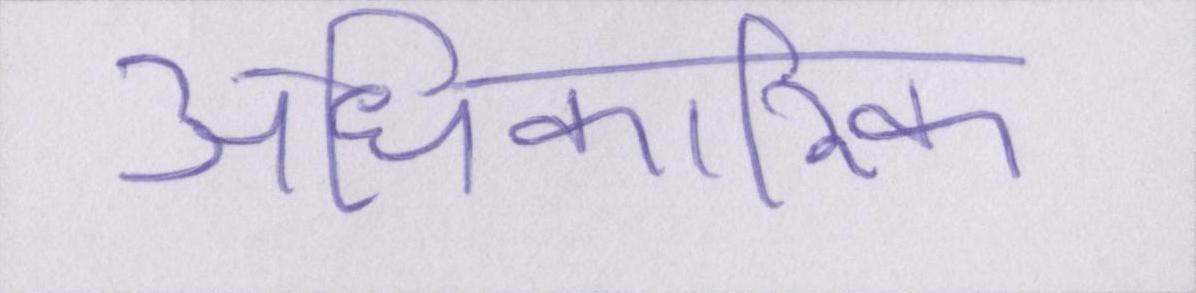 अधिकारिक